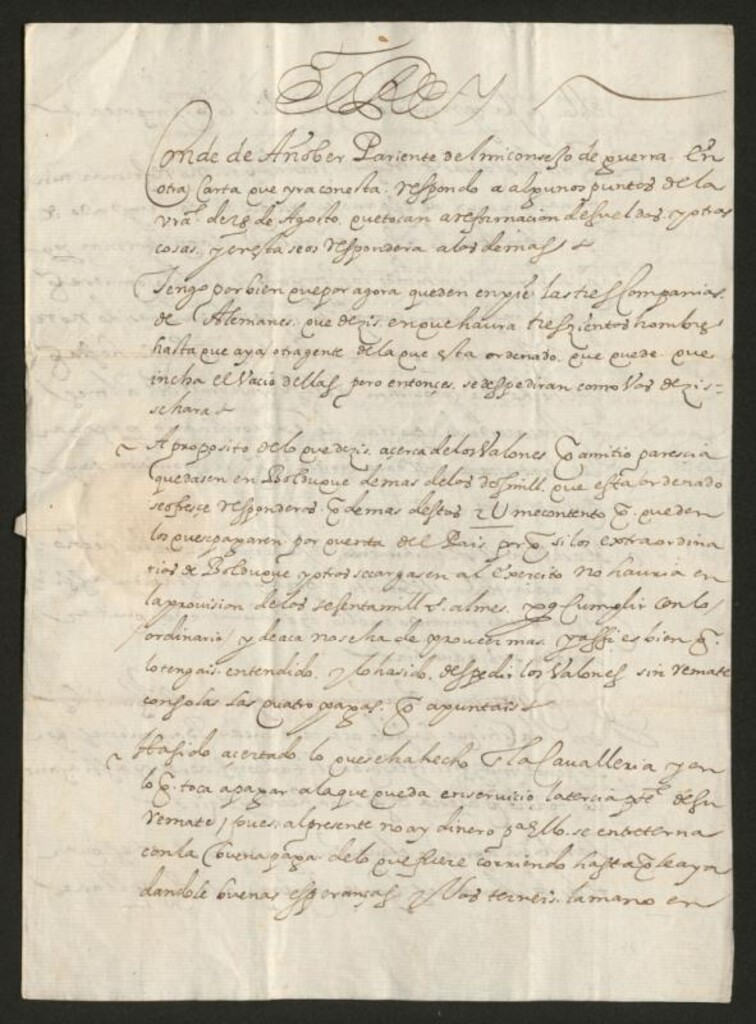 El Rey
Conde de Añober Pariente del mi consejo de guerra. En
otra Carta que yra con esta. respondo a algunos puntos de la
vra. de 28 de Agosto. que tocan a reformacion de sueldos, y otras
cosas. y en esta se os respondera a los demas
Tengo por bien que por agora queden en pie las tres Companias
de Alemanes. que dezis. en que haura trescientos hombres
hasta que aya otra gente de la que esta ordenado. que quede. que
incha el Vacio dellas. pero entonçes. se despediran como Vos dezis
se hara
A proposito de lo que dezis. acerca de los Valones q̃ a mi tio parescia
quedasen en Bolduque demas de los dos mill. que esta ordenado
se ofresçe responderos q̃ demas destos 2U me contento q̃. queden
los que se pagaren. por quenta del Pais. porq̃. si los extraordina
rios de Bolduque y otros se cargasen al Exercito no hauria en
la provision de los sesenta mill al mes. Cumplir con lo
ordinario / y de aca no se ha de proueer mas. y assi es bien q̃.
lo tengais. entendido. y lo ha sido. despedir los Valones sin remate
con solas las quatro pagas. q̃ apuntais
Ha sido acertado lo que se ha hecho la Cavalleria y en
lo q̃. toca a pagar a la que queda en servicio la tercia pte. de su
remate / pues. al presente no ay dinero pa ello. se entreterna
con la buena paga de lo que fuere corriendo hasta q̃ le aya
dandole buenas esperanças y Vos terneis. la mano en